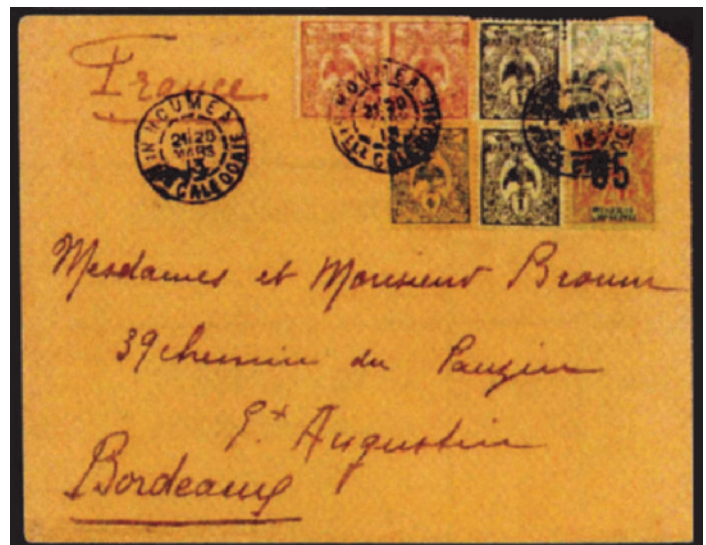 France
NOUMEA
21 20
MARS
13
CALEDONIE
NOUMEA
20
13
CALEDONIE
05
Mesdames et Monsieur Brown
39 chemin du
St Augustin
Bordeaux